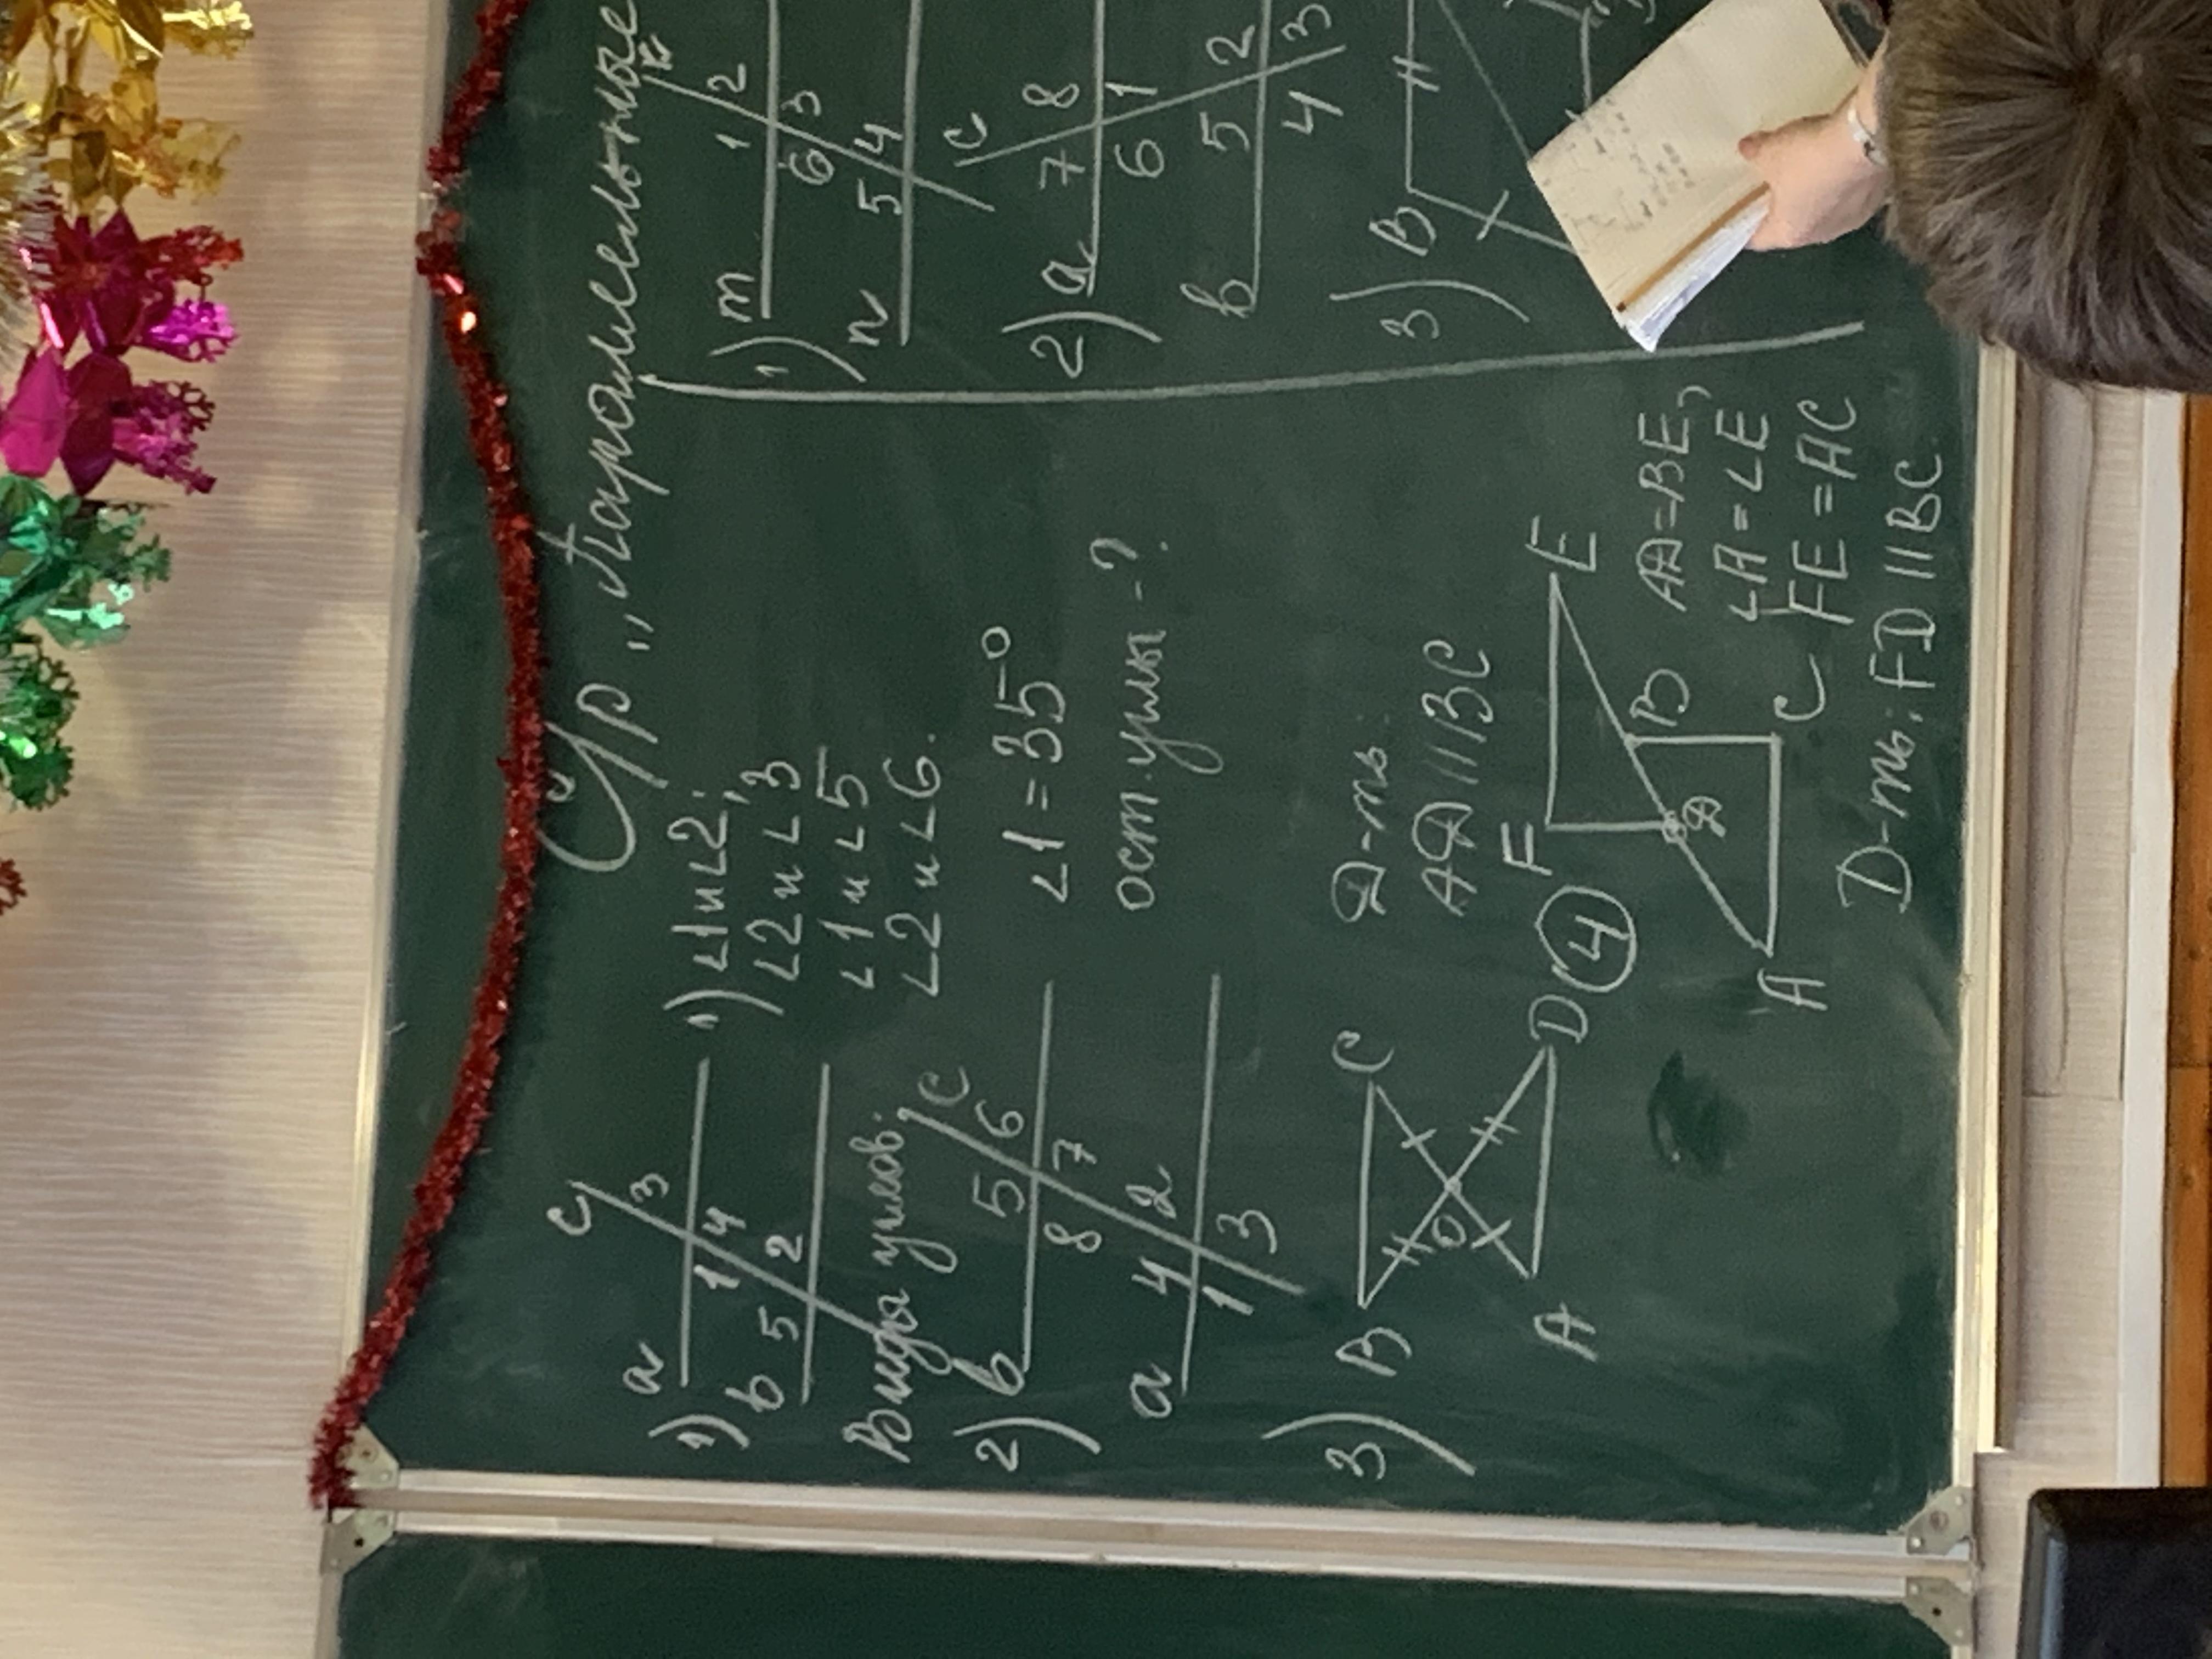 С/р „Параллельные
1)
a
b
c
3
1 4
5 2
1) ∠1 и ∠2;
∠2 и ∠3
∠1 и ∠5
∠2 и ∠6.
Виды углов:
2)
b
c
5 6
8 7
a
4 2
1 3
∠1 = 35°
ост. углы - ?
3)
B C
O
A D
Д-ть:
AD || BC
4
F E
D B
A C
AD = BE,
∠A = ∠E
FE = AC
D-ть: FD || BC
1)
m
1 2
6 3
n
5 4
2)
c
a
7 8
6 1
b
5 2
4 3
3)
B